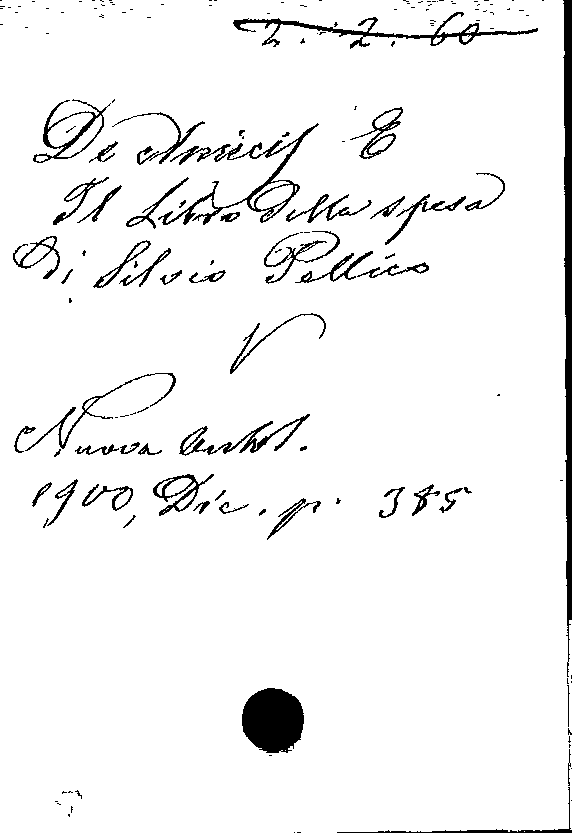 2. 2. 60
De Amicis E
Il Libro della spesa
di Silvio Pellico
V
Nuova Antol.
1900, Dic. p. 385